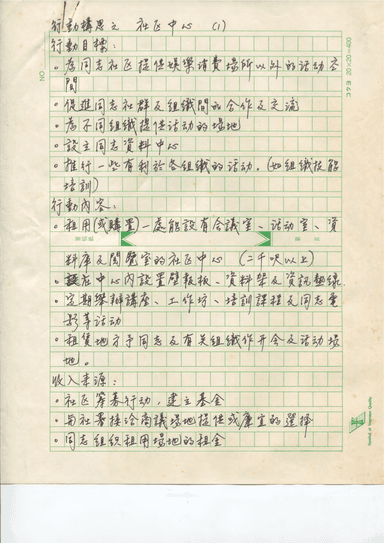 行動構思之 社區中心 (1)
行動目標：
・為同志社區提供娛樂消費場所以外的活動空
間
・促進同志社群及組織間的合作及交流
・為不同組織提供活動的場地
・設立同志資料中心
・推行一些有利於各組織的活動。(如組織技能
培訓)
行動內容：
・租用(或購置)一處能設有會議室、活動室、資
料庫及閱覽室的社區中心 (二千呎以上)
在中心內設置壁報板、資料架及資訊熱線
・定期舉辦講座、工作坊、培訓課程及同志電
影等活動
・租賃地方予同志及有關組織作開會及活動場
地。
收入來源：
・社區籌募行動，建立基金
・與社署接洽商議場地提供或廉宜的選擇
・同志組織租用場地的租金
NO
コクヨ 20×20=400